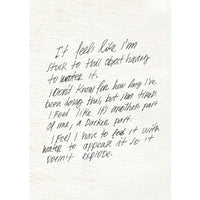 It feels like I'm
stuck to this object having
to water it.
I don't know for how long I've
been doing this, but I'm tired.
I feel like it's another part
of me, a Darker part.
I feel I have to feed it with
water to appease it so it
doesn't explode.